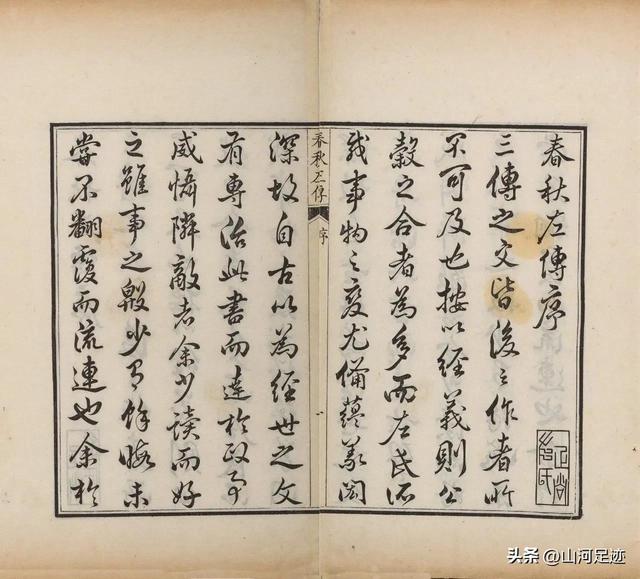 春秋左傳序
三傳之文皆後之作者所
不可及也按以經義則公
穀之合者為多而左氏所
載事物之變尤備蘊義閎
春秋左傳
序
深故自古以為經世之文
有專治此書而達於政事
威懾隣敵者余少讀而好
之雖事之殷少有餘暇未
嘗不翻覆而流連也余於
头条 @山河足迹